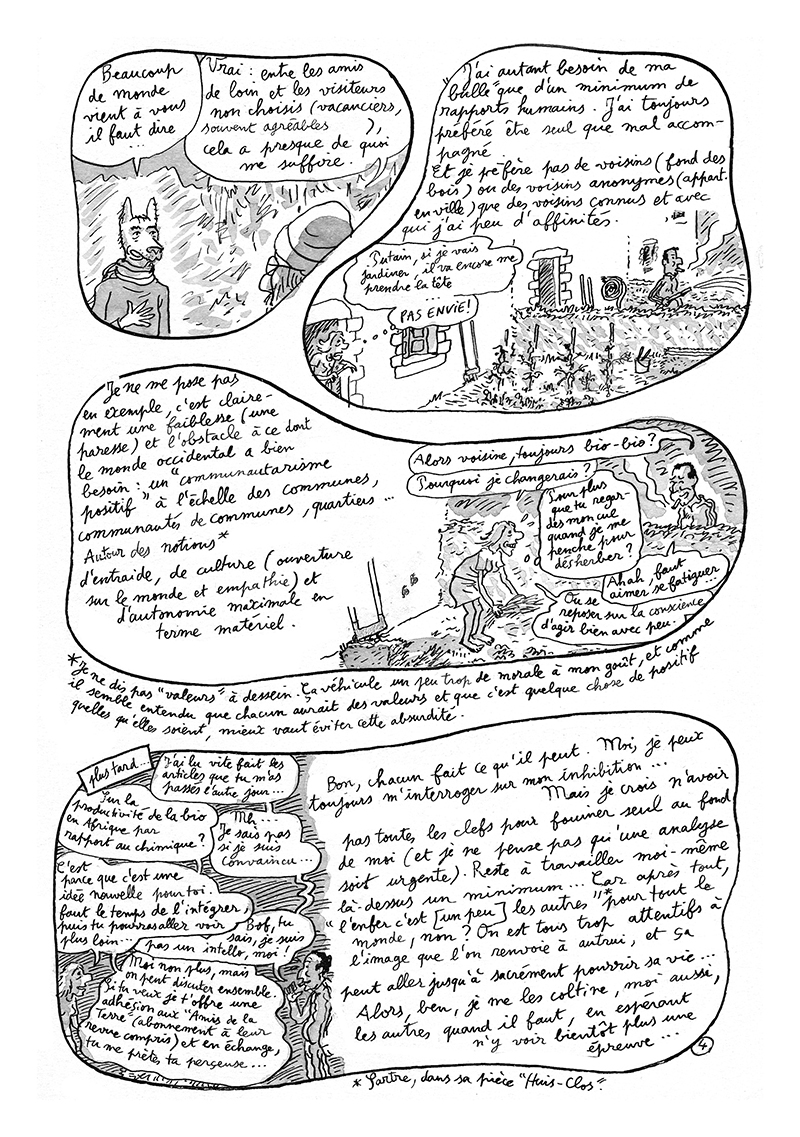 Beaucoup
de monde
vient à vous
il faut dire
...
Vrai : entre les amis
de loin et les visiteurs
non choisis (vacanciers,
souvent agréables ),
cela a presque de quoi
me suffire.
J'ai autant besoin de ma
"bulle" que d'un minimum de
rapports humains. J'ai toujours
préféré être seul que mal accom-
pagné.
Et je préfère pas de voisins (fond des
bois) ou des voisins anonymes (appart.
en ville) que des voisins connus et avec
qui j'ai peu d'affinités.
Putain, si je vais
jardiner, il va encore me
prendre la tête
...
PAS ENVIE !
Je ne me pose pas
en exemple, c'est claire-
ment une faiblesse (une
paresse) et l'obstacle à ce dont
le monde occidental a bien
besoin : un "communautarisme
positif" à l'échelle des communes,
communautés de communes, quartiers ...
Autour des notions*
d'entraide, de culture (ouverture
sur le monde et empathie) et
d'autonomie maximale en
terme matériel.
Alors voisine, toujours bio-bio ?
Pourquoi je changerais ?
Pour plus
que tu regar-
des mon cul
quand je me
penche pour
désherber ?
Ahah, faut
aimer se fatiguer...
Ou se
reposer sur la conscience
d'agir bien avec peu.
*Je ne dis pas "valeurs" à dessein. Ça véhicule un peu trop de morale à mon goût, et comme
il semble entendu que chacun aurait des valeurs et que c'est quelque chose de positif
quelles qu'elles soient, mieux vaut éviter cette absurdité.
plus tard...
J'ai lu vite fait les
articles que tu m'as
passés l'autre jour...
Sur la
productivité de la bio
en Afrique par
rapport au chimique ?
Mh...
Je sais pas
si je suis
convaincu...
C'est
parce que c'est une
idée nouvelle pour toi.
faut le temps de l'intégrer,
puis tu pourras aller voir
plus loin...
Bof, tu
sais, je suis
pas un intello, moi !
Moi non plus, mais
on peut discuter ensemble.
Si tu veux je t'offre une
adhésion aux "Amis de la
Terre" (abonnement à leur
revue compris) et en échange,
tu me prêtes ta perceuse...
Bon, chacun fait ce qu'il peut. Moi, je peux
toujours m'interroger sur mon inhibition ...
Mais je crois n'avoir
pas toutes les clefs pour fouiner seul au fond
de moi (et je ne pense pas qu'une analyse
soit urgente). Reste à travailler moi-même
là-dessus un minimum... Car après tout,
"l'enfer c'est [un peu] les autres"* pour tout le
monde, non ? On est tous trop attentifs à
l'image que l'on renvoie à autrui, et ça
peut aller jusqu'à sacrément pourrir sa vie...
Alors, ben, je me les coltine, moi aussi,
les autres quand il faut, en espérant
n'y voir bientôt plus une
épreuve ...
4
* Sartre, dans sa pièce "Huis-Clos".